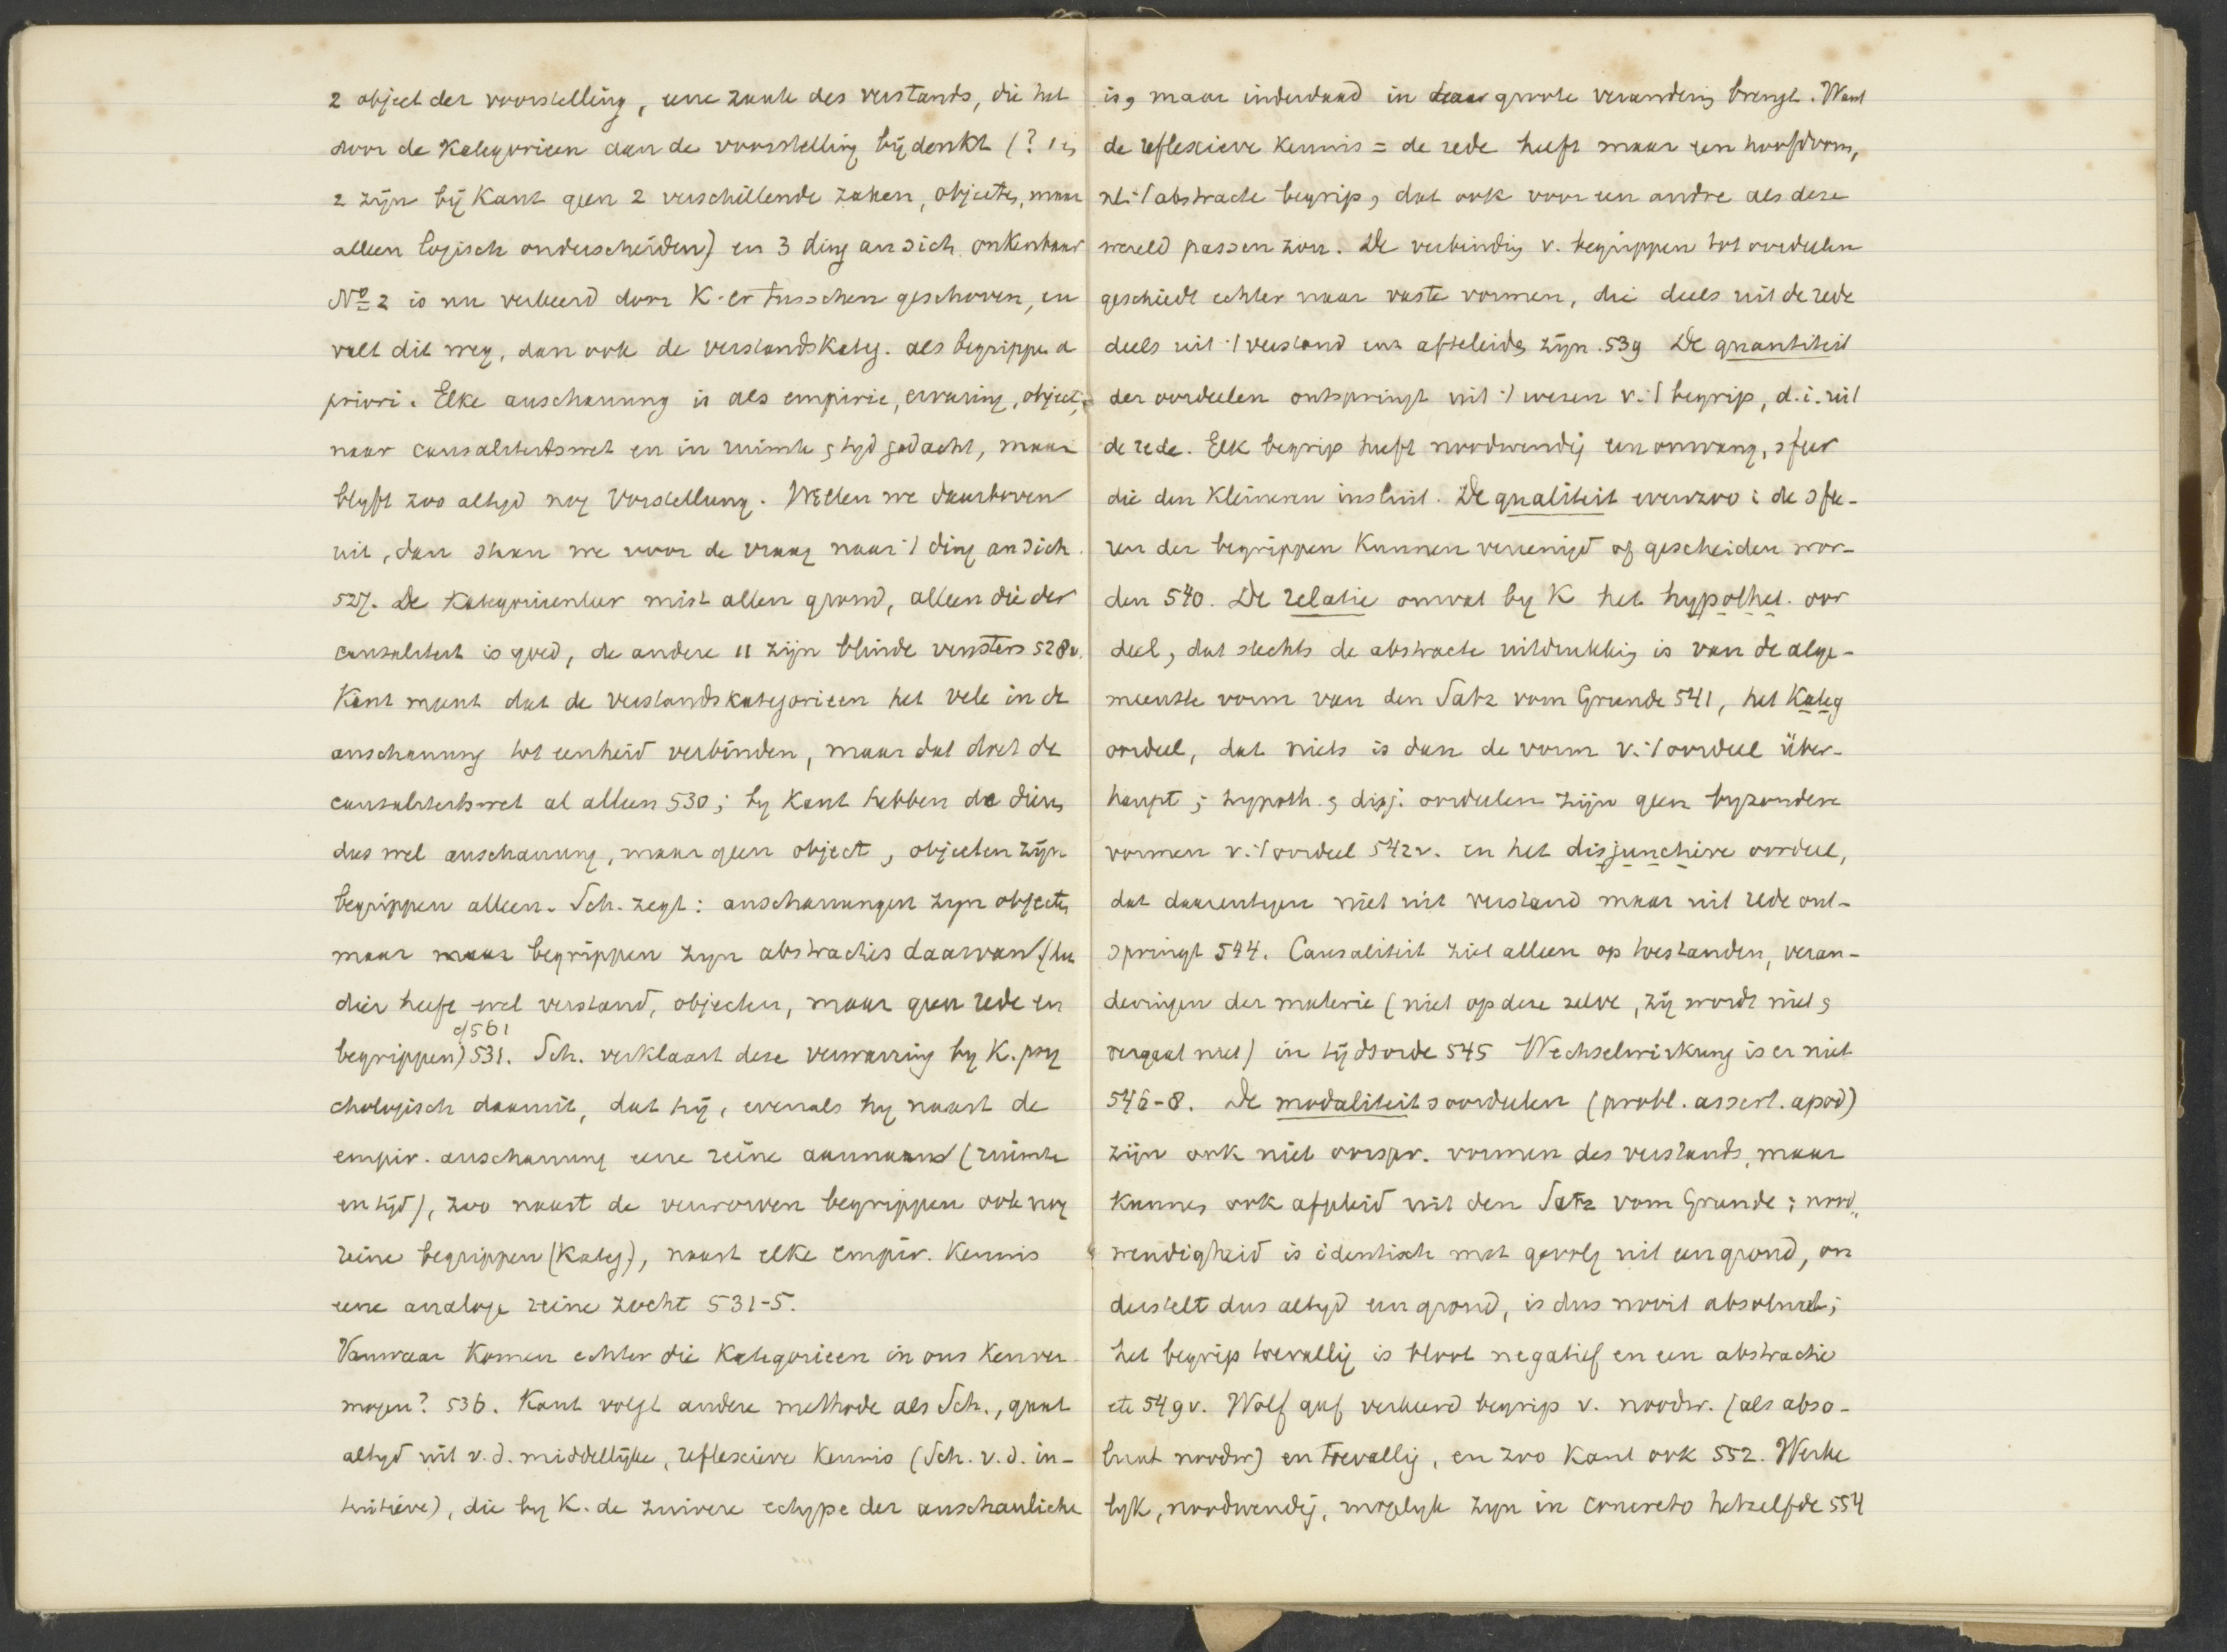 2 object der voorstelling, eene zaak des verstands, die het
door de Kategorieen aan de voorstelling bij denkt (? 1 en
2 zijn bij Kant geen 2 verschillende zaken, objecten, maar
alleen logisch onderscheiden) en 3 ding an sich. onkenbaar
No 2 is nu verkeerd door K. er tusschen geschoven, en
valt dit weg, dan ook de verstandskateg. als begrippen a
priori. Elke anschauung is als empirie, ervaring, object,
naar causaliteitswet en in ruimte & tijd gedacht, maar
blijft zoo altijd nog Vorstellung. Willen we daarboven
uit, dan staan we voor de vraag naar 't ding an sich
527. De Kategorieenleer mist allen grond, alleen die der
causaliteit is goed, de andere 11 zijn blinde vensters 528v.
Kant meent dat de verstandskategorieen het vele in de
anschauung tot eenheid verbinden, maar dat doet de
causaliteitswet al alleen 530; by Kant hebben de dieren
dus wel anschauung, maar geen object, objecten zijn
begrippen alleen. Sch. zegt: anschauungen zyn objecten
maar maar begrippen zyn abstracties daarvan (het
dier heeft wel verstand, objecten, maar geen rede en
cf 561
begrippen) 531. Sch. verklaart deze verwarring by K. psy
chologisch daaruit, dat hij, evenals hy naast de
empir. anschauung eene reine aannam (ruimte
en tijd), zoo naast de verworven begrippen ook nog
reine begrippen (Kateg), naast elke empir. Kennis
eene analoge reine zocht 531-5.
Vanwaar Komen echter die Kategorieen in ons Kenver
mogen? 536. Kant volgt andere methode als Sch., gaat
altyd uit v.d. middellijke, reflexieve Kennis (Sch. v.d. in-
tuitieve), die by K. de zuivere echype der anschauliche
is, maar inderdaad in daar groote verandering brengt. Want
de reflexieve Kennis = de rede heeft maar een hoofdvorm,
nl. 't abstracte begrip, dat ook voor een andre als deze
wereld passen zou. De verbinding v. begrippen tot oordeelen
geschiedt echter naar vaste vormen, die deels uit de rede
deels uit 't verstand enz afteleiden zijn. 539 De quantiteit
der oordeelen ontspringt uit 't wezen v. 't begrip, d.i. uit
de rede. Elk begrip heeft noodwendig een omvang, sfeer
die den Kleineren insluit. De qualiteit evenzoo: de sfe-
ren der begrippen Kunnen vereenigd of gescheiden wor-
den 540. De relatie omvat by K het hypothet. oor
deel, dat slechts de abstracte uitdrukking is van de alge-
meenste vorm van den Satz vom Grunde 541, het Kateg
oordeel, dat niets is dan de vorm v. 't oordeel über-
haupt; hypoth. & disj. oordeelen zijn geen byzondere
vormen v. 't oordeel 542v. en het disjunctieve oordeel,
dat daarentegen niet uit verstand maar uit rede ont-
springt 544. Causaliteit ziet alleen op toestanden, veran-
deringen der materie (niet op deze zelve, zij wordt niet &
vergaat niet) in tijdsorde 545 Wechselwirkung is er niet
546-8. De modaliteitsoordeelen (probl. assert. apod)
zijn ook niet oorspr. vormen des verstands, maar
Kunnen ook afgeleid uit den Satz vom Grunde; nood„
wendigheid is identisch met gevolg uit een grond, on
derstelt dus altyd een grond, is dus nooit absoluut;
het begrip toevallig is bloot negatief en een abstractie
etc 549v. Wolf gaf verkeerd begrip v. noodw. (als abso-
luut noodw) en toevallig, en zoo Kant ook 552. Werke
lyk, noodwendig, mogelyk zyn in concreto hetzelfde 554